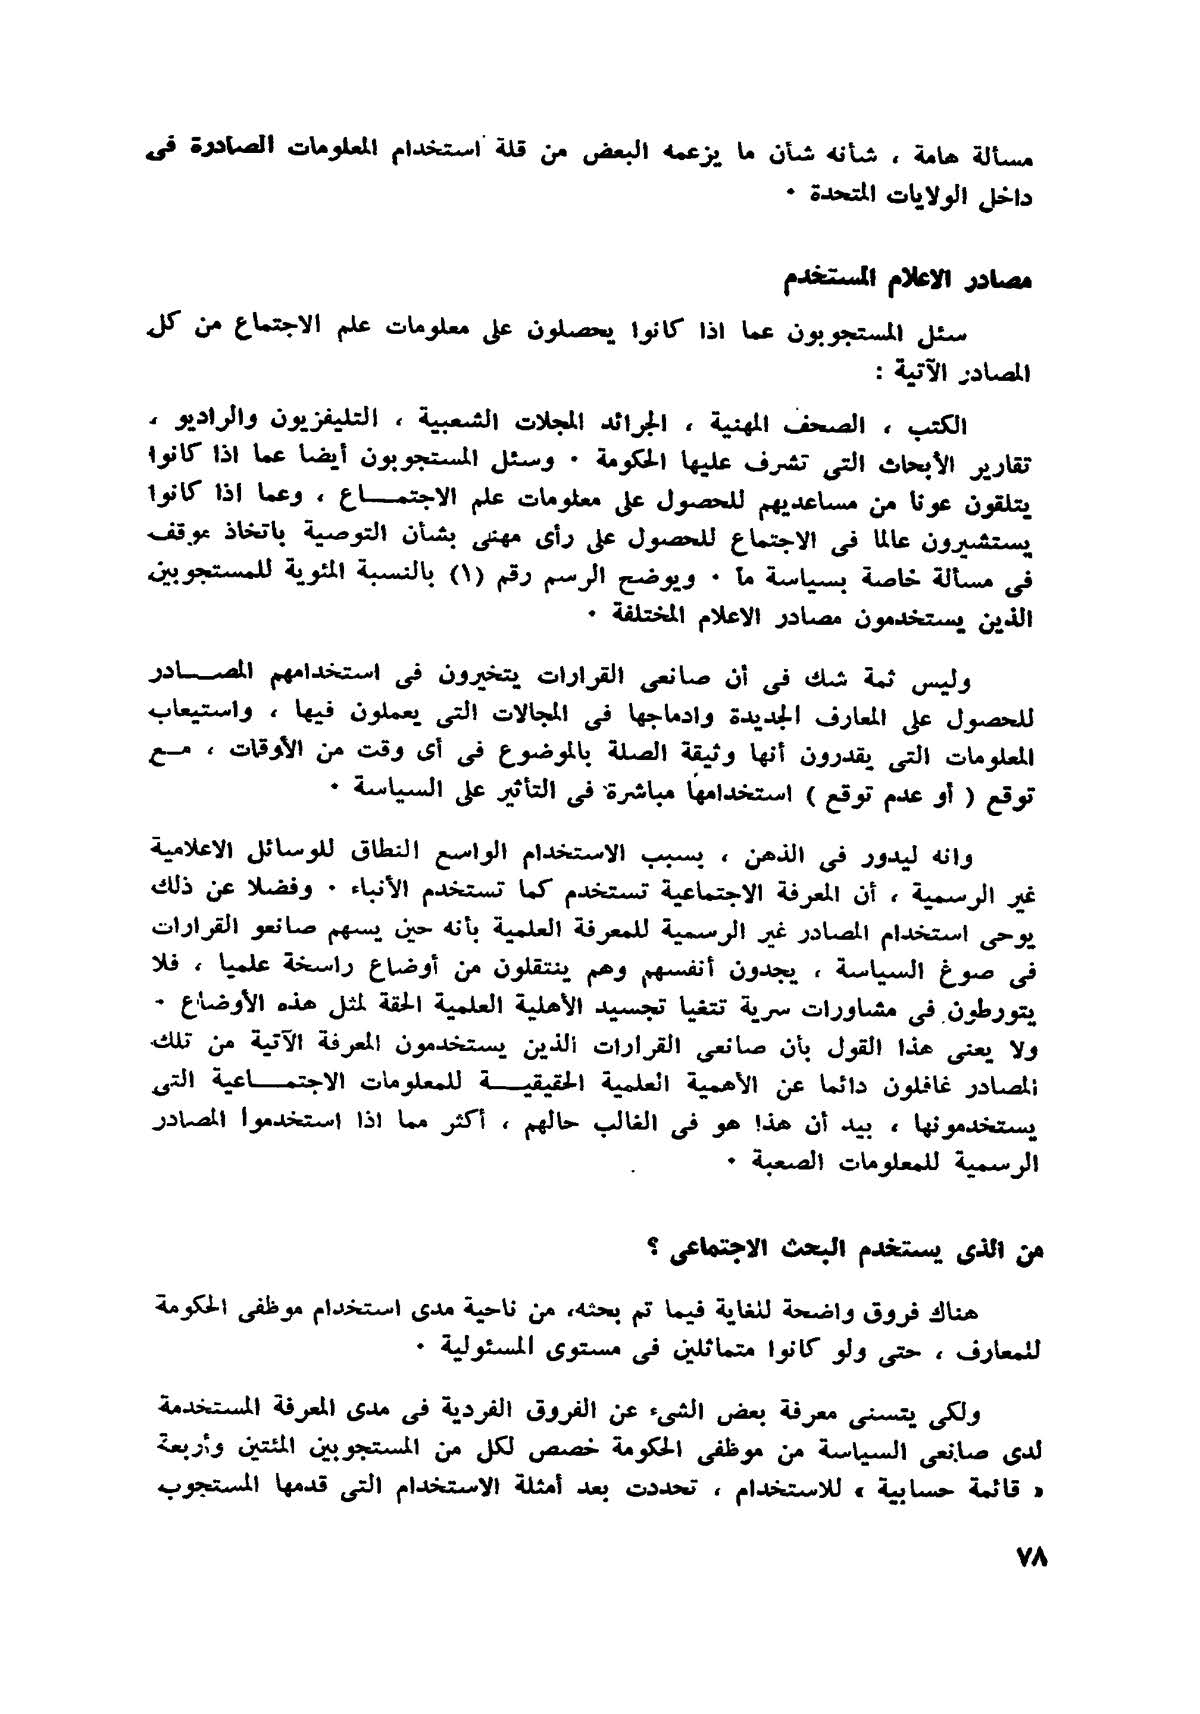 مسألة هامة ، شأنه شأن ما يزعمه البعض من قلة استخدام المعلومات الصادرة فى
داخل الولايات المتحدة ٠
مصادر الاعلام المستخدم
سئل المستجوبون عما اذا كانوا يحصلون على معلومات علم الاجتماع من كل
المصادر الآتية :
الكتب ، الصحف المهنية ، الجرائد المجلات الشعبية ، التليفزيون والراديو ،
تقارير الأبحاث التى تشرف عليها الحكومة ٠ وسئل المستجوبون أيضا عما اذا كانوا
يتلقون عونا من مساعديهم للحصول على معلومات علم الاجتمـــاع ، وعما اذا كانوا
يستشيرون عالما فى الاجتماع للحصول على رأى مهنى بشأن التوصية باتخاذ موقف
فى مسألة خاصة بسياسة ما ٠ ويوضح الرسم رقم (١) بالنسبة المئوية للمستجوبين
الذين يستخدمون مصادر الاعلام المختلفة ٠
وليس ثمة شك فى أن صانعى القرارات يتخيرون فى استخدامهم المصـــادر
للحصول على المعارف الجديدة وادماجها فى المجالات التى يعملون فيها ، واستيعاب
المعلومات التى يقدرون أنها وثيقة الصلة بالموضوع فى أى وقت من الأوقات ، مــع
توقع ( أو عدم توقع ) استخدامها مباشرة فى التأثير على السياسة ٠
وانه ليدور فى الذهن ، بسبب الاستخدام الواسع النطاق للوسائل الاعلامية
غير الرسمية ، أن المعرفة الاجتماعية تستخدم كما تستخدم الأنباء ٠ وفضلا عن ذلك
يوحى استخدام المصادر غير الرسمية للمعرفة العلمية بأنه حين يسهم صانعو القرارات
فى صوغ السياسة ، يجدون أنفسهم وهم ينتقلون من أوضاع راسخة علميا ، فلا
يتورطون فى مشاورات سرية تتغيا تجسيد الأهلية العلمية الحقة لمثل هذه الأوضاع ٠
ولا يعنى هذا القول بأن صانعى القرارات الذين يستخدمون المعرفة الآتية من تلك
المصادر غافلون دائما عن الأهمية العلمية الحقيقيـــة للمعلومات الاجتمـــاعية التى
يستخدمونها ، بيد أن هذا هو فى الغالب حالهم ، أكثر مما اذا استخدموا المصادر
الرسمية للمعلومات الصعبة ٠
من الذى يستخدم البحث الاجتماعى ؟
هناك فروق واضحة للغاية فيما تم بحثه، من ناحية مدى استخدام موظفى الحكومة
للمعارف ، حتى ولو كانوا متماثلين فى مستوى المسئولية ٠
ولكى يتسنى معرفة بعض الشىء عن الفروق الفردية فى مدى المعرفة المستخدمة
لدى صانعى السياسة من موظفى الحكومة خصص لكل من المستجوبين المئتين وأربعة
« قائمة حسابية » للاستخدام ، تحددت بعد أمثلة الاستخدام التى قدمها المستجوب
٧٨